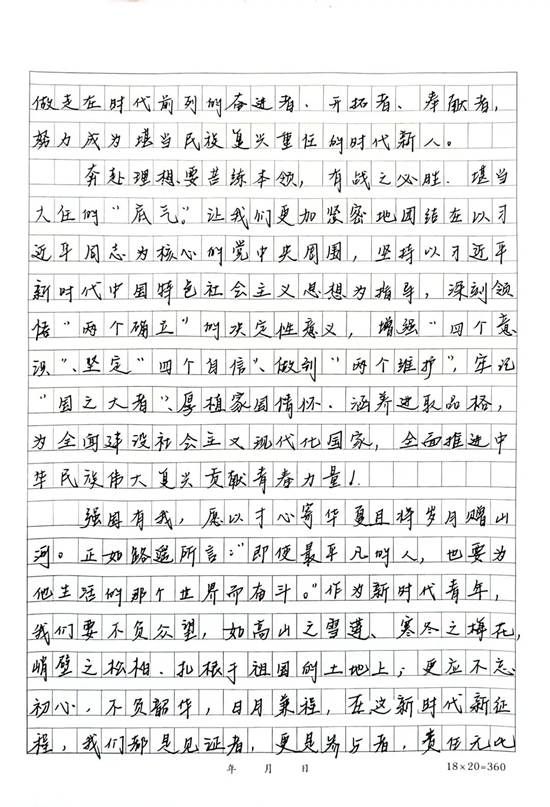 做走在时代前列的奋进者、开拓者、奉献者，
努力成为堪当民族复兴重任的时代新人。
奔赴理想要苦练本领，有战之必胜、堪当
大任的“底气”。让我们更加紧密地团结在以习
近平同志为核心的党中央周围，坚持以习近平
新时代中国特色社会主义思想为指导，深刻领
悟“两个确立”的决定性意义，增强“四个意
识”、坚定“四个自信”、做到“两个维护”，牢记
“国之大者”、厚植家国情怀、涵养进取品格，
为全面建设社会主义现代化国家，全面推进中
华民族伟大复兴贡献青春力量！
强国有我，愿以寸心寄华夏且将岁月赠山
河。正如路遥所言：“即使最平凡的人，也要为
他生活的那个世界而奋斗。”作为新时代青年，
我们要不负众望，如高山之雪莲、寒冬之梅花，
峭壁之松柏、扎根于祖国的土地上；更应不忘
初心、不负韶华，日月兼程，在这新时代新征
程，我们都是见证者，更是参与者，责任无比
年 月 日
18×20=360